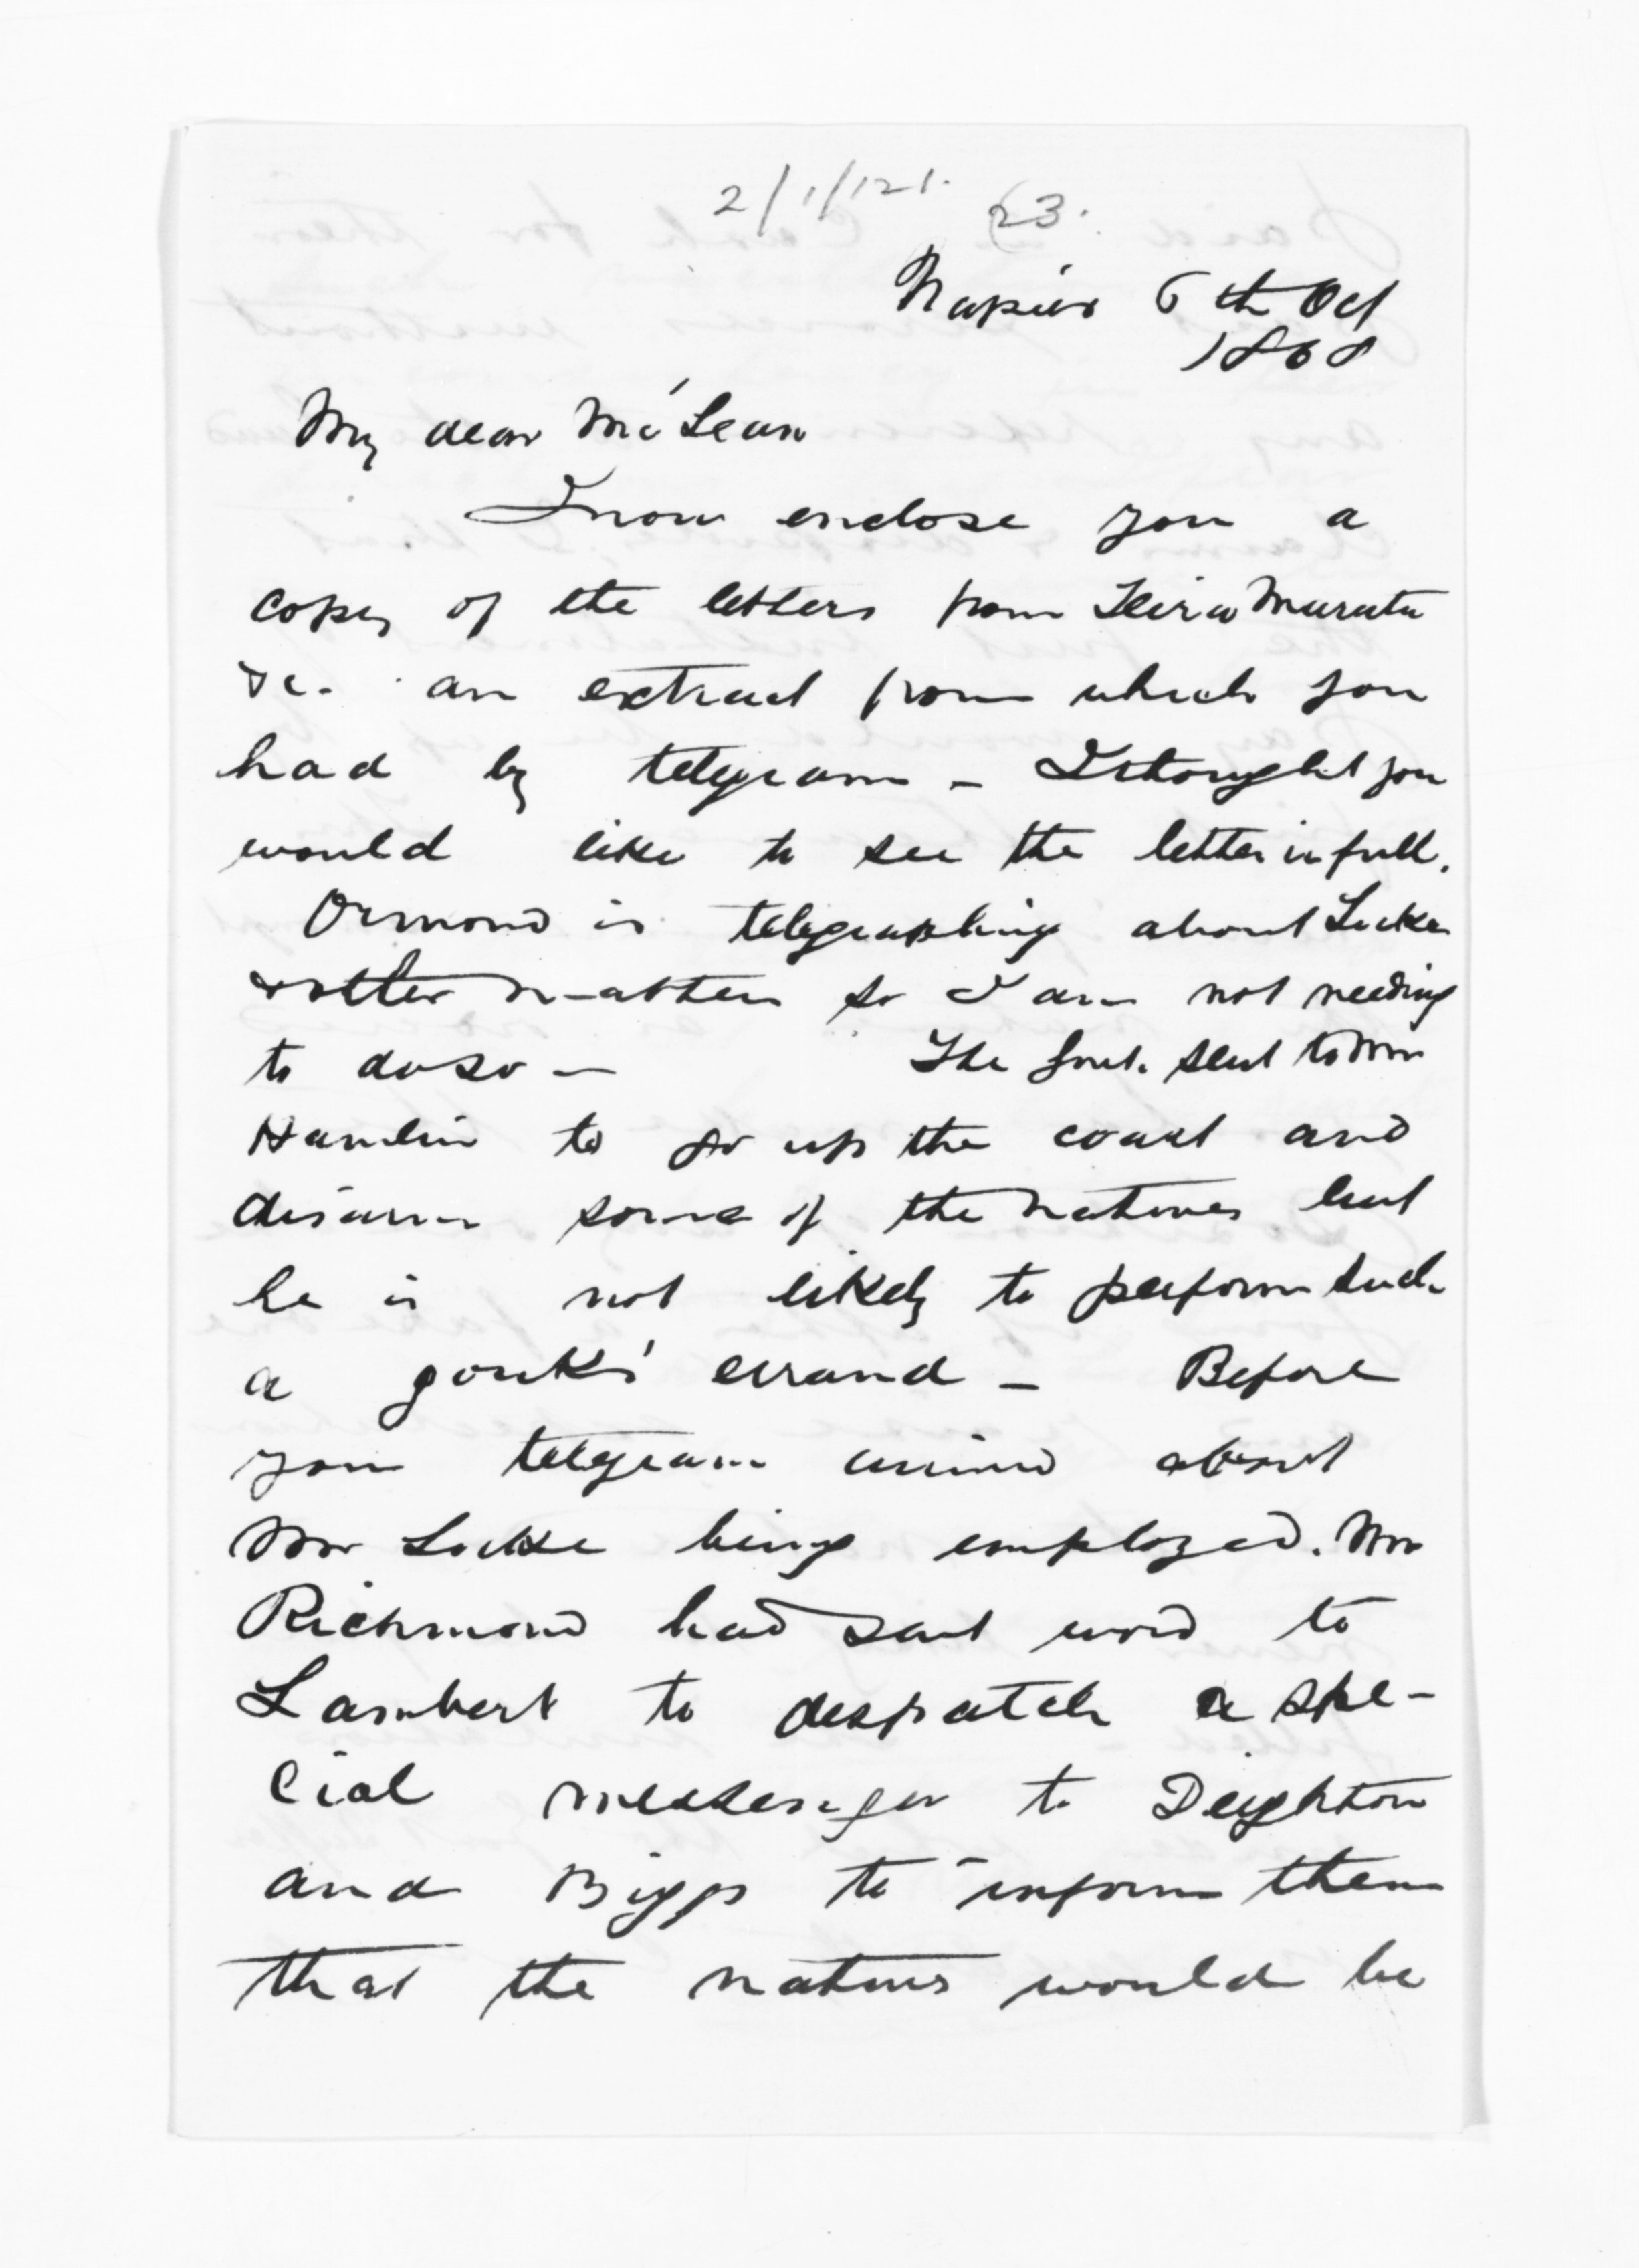 2/1/121. 23.
Napier 6th Oct
1868
My dear McLean
I now enclose you a
copy of the letters from
&c. an extract from which you
had by telegram – I thought you
would like to see the letter in full.
Ormond is telegraphing about Locke
& other matters so I am not needing
to do so – The Govt. sent to Mr
Hamlin to go up the coast and
disarm some of the natives but
he is not likely to perform such
a gouk's errand – Before
your telegram arrived about
Mr Locke being employed. Mr
Richmond had sent word to
Lambert to despatch a spe-
cial messenger to Deighton
and Biggs to inform them
that the natives would be